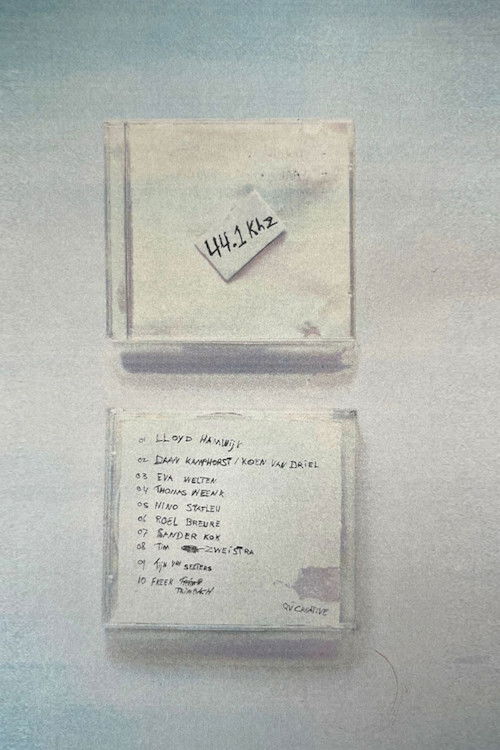 44.1 Khz
01 LLOYD HAMWIJK
02 DAAN KAMPHORST / KOEN VAN DRIEL
03 EVA WELTEN
04 THOMAS WEENK
05 NINO STATLEU
06 ROEL BREURE
07 SANDER KOK
08 TIM ZWEISTRA
09 TIJN VAN SEETERS
10 FREEK
TRIMBACH
QU CREATIVE